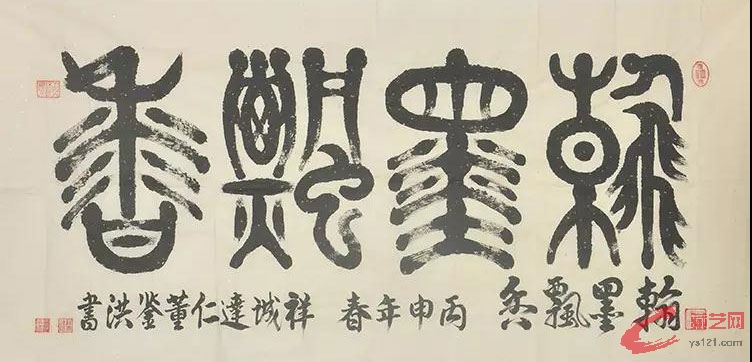 翰墨飄香
翰墨飄香 丙申年春 祥城達仁董鉴洪書
藏艺网
ys121.com